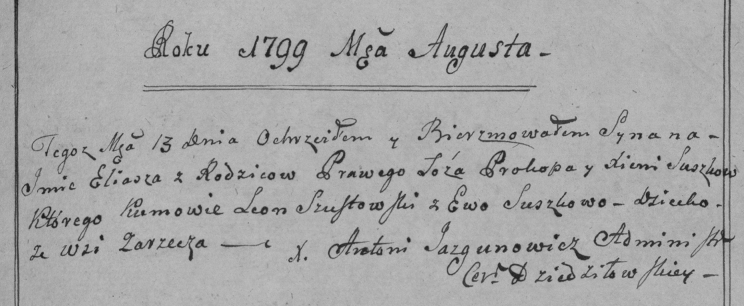 Roku 1799 Mca Augusta -
Tegoz Mca 13 Dnia Ochrzciłem y Bierzmowałem Syna na-
Jmie Eliasza z Rodzicow Prawego Łoża Prokopa y Xieni Suszkow
Którego Kumowie Leon Szustowski z Ewo Suszkowo - Dziecko -
ze wsi Zarzecza - X. Antoni Jazgunowicz Administr
Cer. Dziedziłowskiey -